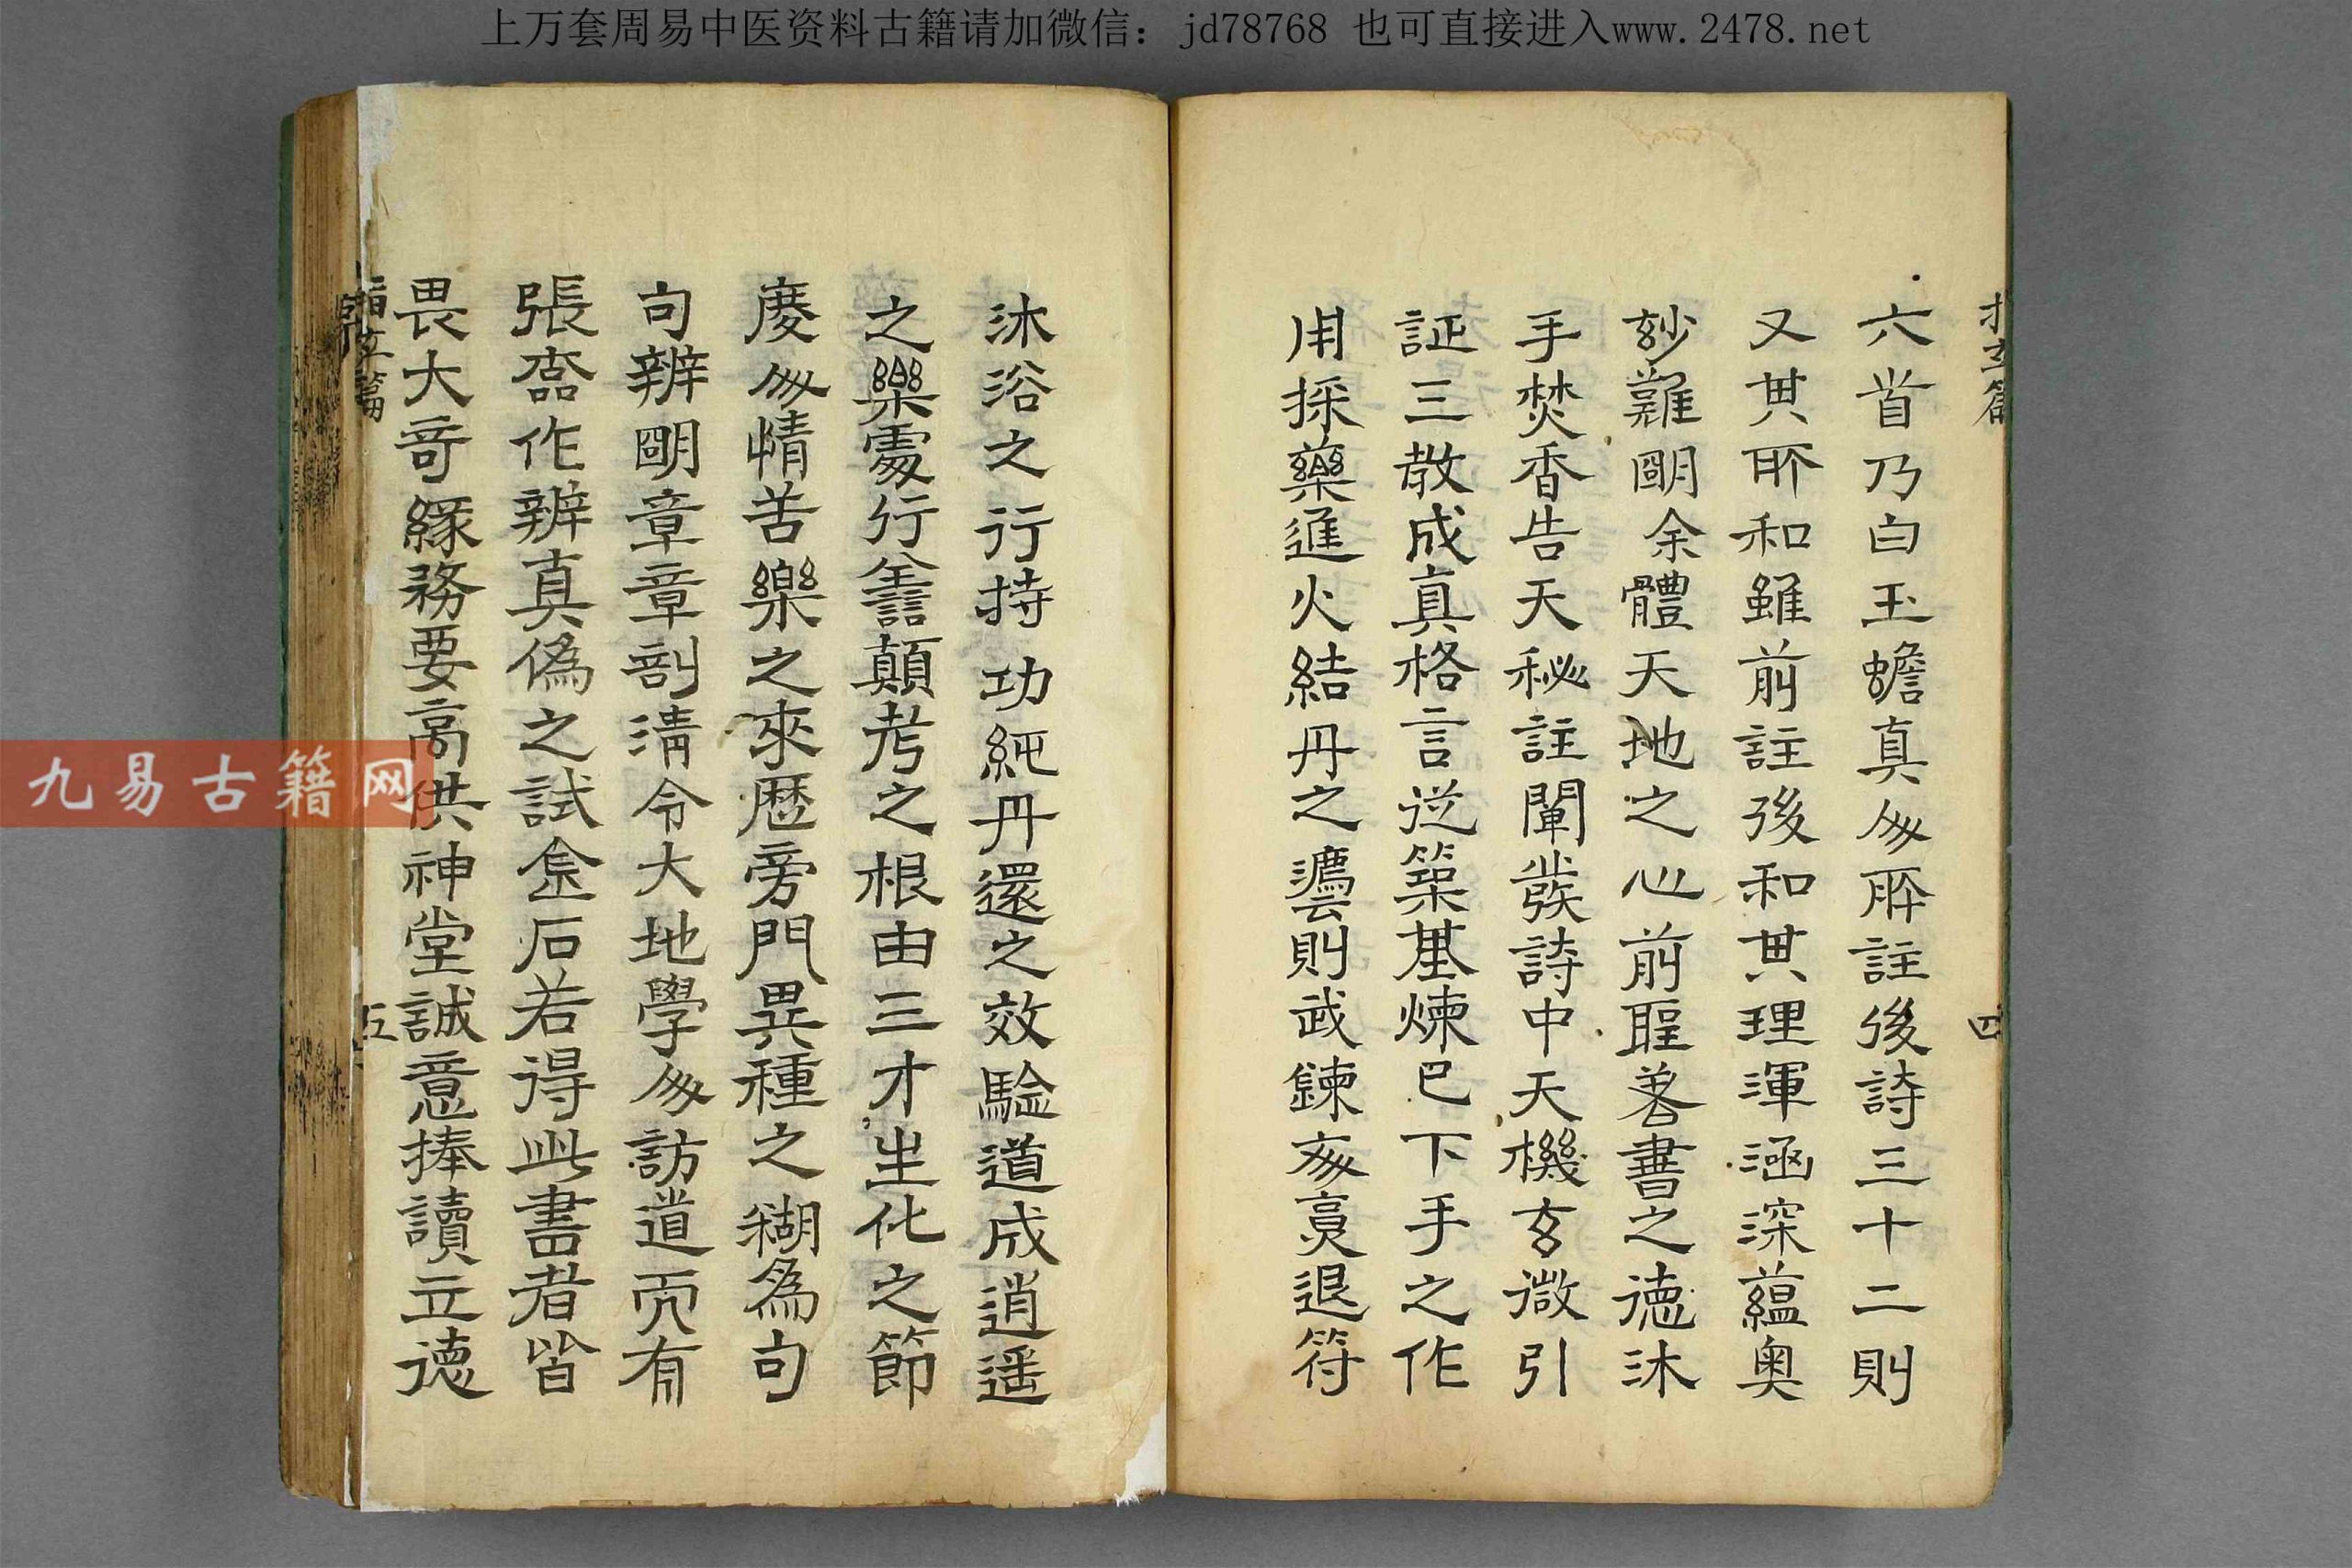 上万套周易中医资料古籍请加微信：jd78768 也可直接进入www.2478.net
六首乃白玉蟾真人所註後詩三十二則
又其所和雖前註後和其理渾涵深蘊奧
玅難明余體天地之心前聖著書之德沐
手焚香告天秘註闡發詩中天機玄微引
証三教成真格言從築基煉己下手之作
用採藥進火結丹之 則武鍊文烹退符
沐浴之行持功純丹還之效驗道成逍遥
之樂處行 顛 之根由三才生化之節
度人情苦樂之來歷旁門異種之糊為句
句辨明章章剖清令大地學人訪道而有
張 作辨真偽之試金石若得此書者皆
畏大奇緣務要高供神堂誠意捧讀立德
玄篇
四
五
九易古籍网